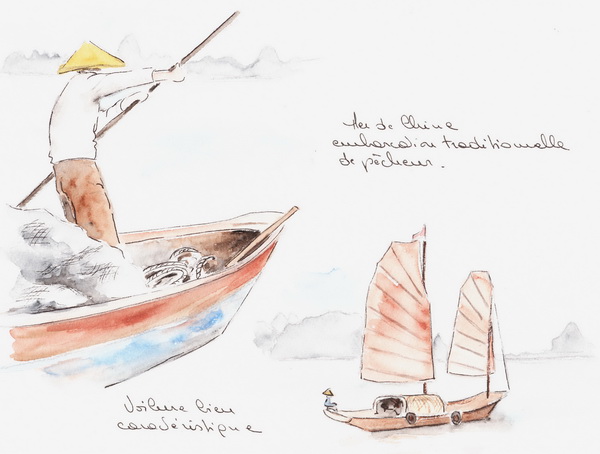 Mer de Chine
embarcation traditionnelle
de pêcheur.
Voilure bien
caractéristique